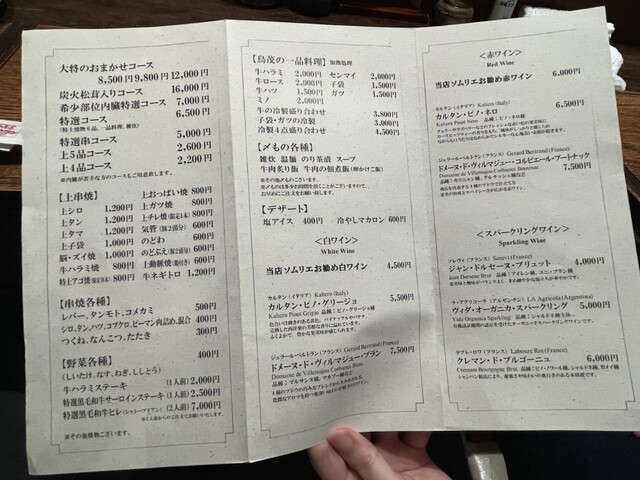 大将のおまかせコース
8,500円 9,800円 12,000円
炭火松茸入りコース 16,000円
希少部位内臓特選コース 7,000円
特選コース 6,500円
(特上焼物6品、一品料理、雑炊)
特選串コース 5,000円
上5品コース 2,600円
上4品コース 2,200円
※内臓が苦手な方のコースもご用意致します。
【上串焼】
上シロ 1,200円
上タン 1,200円
上タマ 1,200円
上子袋 1,000円
脳・ズイ焼 1,000円
牛ハラミ焼 800円
特上アゴ焼(限定2本) 800円
上おっぱい焼 800円
上ガツ焼 800円
上チレ焼(限定1本) 800円
気管(豚2頭分) 600円
のどわ 600円
のどぶえ(豚2頭分) 600円
上動脈焼(脂付き) 600円
牛ネギトロ 1,200円
【串焼各種】
レバー、タンモト、コメカミ 500円
シロ、タン、ハツ、コブクロ、ピーマン肉詰め、混合 400円
つくね、なんこつ、たたき 300円
【野菜各種】 400円
(しいたけ、なす、ねぎ、ししとう)
牛ハラミステーキ (1人前) 2,000円
特選黒毛和牛サーロインステーキ (1人前) 2,500円
特選黒毛和牛ヒレ(シャトーブリアン) (2人前) 7,000円
※2人前からのご注文でお願いいたします。
※その他焼物ございます。
【鳥茂の一品料理】加熱処理
牛ハラミ 2,000円 センマイ 2,000円
牛ロース 2,000円 子袋 1,500円
牛ハツ 1,500円 ガツ 1,500円
ミノ 2,000円
牛の冷製盛り合わせ 3,800円
子袋・ガツの冷製 3,000円
冷製4点盛り合わせ 4,500円
【〆もの各種】
雑炊 温麺 のり茶漬 スープ
牛肉炙り飯 牛肉の佃煮飯(卵かけご飯)
※その他〆もございます。
【デザート】
塩アイス 400円 冷やしマカロン 600円
<白ワイン>
White Wine
当店ソムリエお勧め白ワイン 4,500円
カルタン(イタリア) Kaltern (Italy)
カルタン・ピノ・グリージョ 5,500円
Kaltern Pinot Grigio 品種:ピノ・グリージョ種
ジェラール・ベルトラン(フランス) Gerard Bertrand (France)
ドメーヌ・ド・ヴィルマジュー・ブラン 7,500円
Domaine de Villemajou Corbieres Blanc
<赤ワイン>
Red Wine
当店ソムリエお勧め赤ワイン 6,000円
カルタン(イタリア) Kaltern (Italy)
カルタン・ピノ・ネロ 6,500円
Kaltern Pinot Nero 品種:ピノ・ネロ種
ジェラール・ベルトラン(フランス) Gerard Bertrand (France)
ドメーヌ・ド・ヴィルマジュー・コルビエール・ブートナック
7,500円
<スパークリングワイン>
Sparkling Wine
ソレヴィ(フランス) Sorevi (France)
ジャン・ドルセーヌ・ブリュット 4,000円
Jean Dorsene Brut
ラ・アグリコーラ(アルゼンチン) LA Agricola (Argentina)
ヴィダ・オーガニカ・スパークリング 5,000円
Vida Organica Sparkling
ラブレ・ロワ(フランス) Laboure Roi (France)
クレマン・ド・ブルゴーニュ 6,000円
Cremant Bourgogne Brut